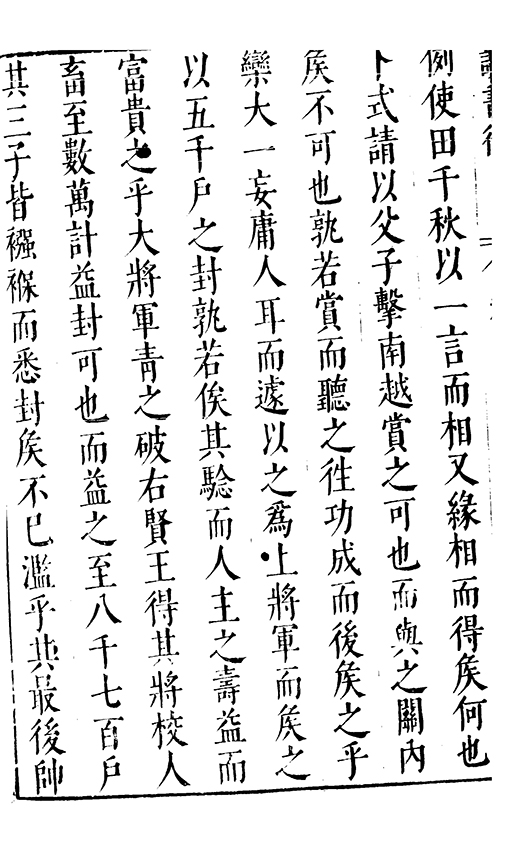 讀書後
例使田千秋以一言而相又緣相而得矦何也
卜式請以父子擊南越賞之可也而與之關內
矦不可也孰若賞而聽之徃功成而後矦之乎
欒大一妄庸人耳而遽以之爲上將軍而矦之
以五千戶之封孰若俟其騐而人主之壽益而
富貴之乎大將軍青之破右賢王得其將校人
畜至數萬計益封可也而益之至八千七百戶
其三子皆襁褓而悉封矦不已濫乎其最後帥